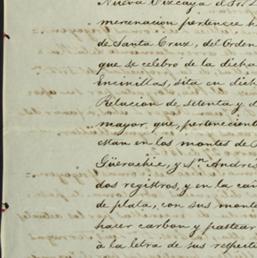 Nueva Vizcaya
merenacion pertenece
de Santa Cruz, del Orden
que se celebro de la dicha
Encinillas, sita en dich
Relacion de setenta y d
mayor que, pertenecient
estan en los montes de
Güerachic, y Sn. Andres
dos registros, y en la cañ
de plata, con sus mont
hacer carbon y pastear
á la letra de sus respect